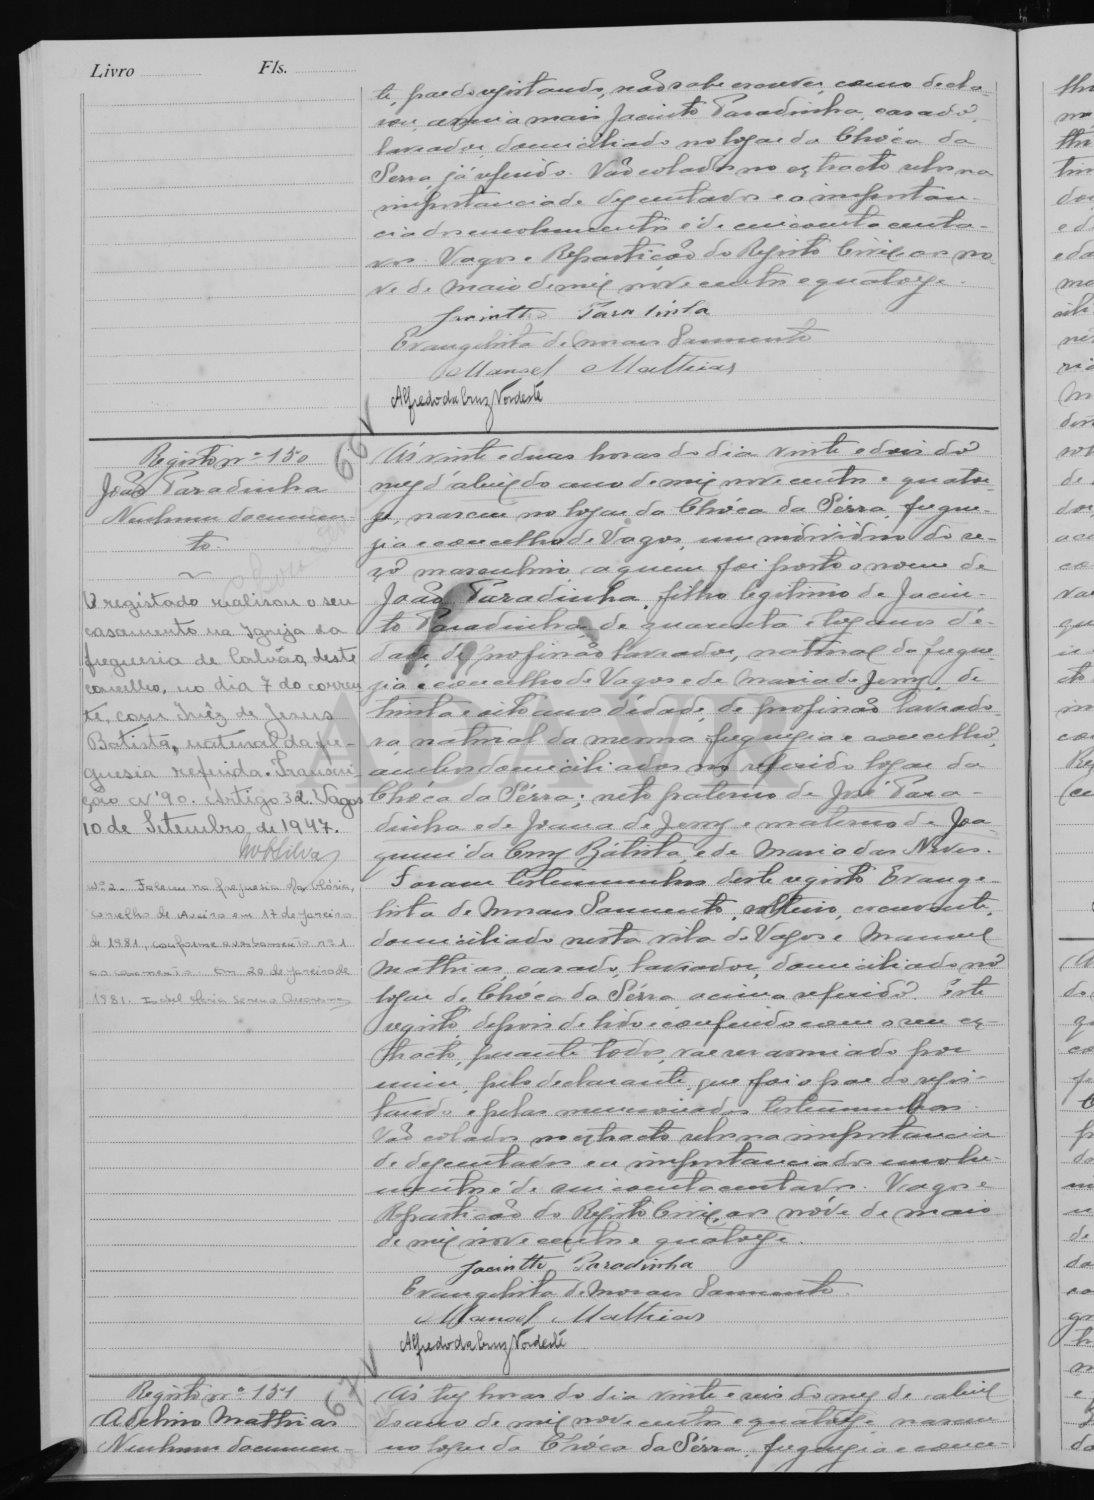 Livro Fls.
te, pae do registando, não sabe escrever, como decla-
rou, assina mais Jacinto Paradinha, casado,
lavrador, domiciliado no logar da Chóca da
Serra já referido. Vão colados no extracto selos na
importancia de dezentados e a importan-
cia dos emolumentos é de cincoenta centa-
vos. Vagos e Repartição do Registo Civil, aos no-
ve de maio de mil nove centos e quatorze.
Jacintto Paradinha
Evangelista de Morais Sarmento
Manoel Mathias
Alfredo da Cruz Nordeste
Registo nº 150
João Paradinha
Nenhum documen-
to.
O registado realisou o seu
casamento na Igreja da
freguesia de Calvão, deste
concelho, no dia 7 do corren
te, com Inêz de Jesus
Batista, natural da fre-
guesia referida. Transcri-
ção nº 90. Artigo 32. Vagos
10 de Setembro de 1947.
Nº 2 - Faleceu na freguesia da Glória,
concelho de Aveiro em 17 de janeiro
de 1981, conforme averbamento nº 1
ao casamento. Em 20 de janeiro de
1981.
66 V
A's vinte e duas horas do dia vinte e dois do
mez d'abril do ano de mil nove centos e quator-
ze, nasceu no logar da Chóca da Sérra, fregue-
zia e concelho de Vagos, um individuo do se-
xo masculino a quem foi posto o nome de
João Paradinha, filho legitimo de Jacin-
to Paradinha, de quarenta e trez anos d'i-
dade, de profissão lavrador, natural da fregue-
zia e concelho de Vagos e de Maria de Jezus, de
trinta e oito anos d'idade, de profissão lavrado-
ra natural da mesma freguezia e concelho,
ambos domiciliados no referido logar da
Chóca da Sérra; neto paterno de José Para-
dinha e de Joana de Jezus e materno de Joa-
quim da Cruz Batista, e de Maria das Neves.
Foram testemunhas deste registo Evange-
lista de Morais Sarmento, solteiro, escrevente,
domiciliado nesta vila de Vagos e Manoel
Mathias, casado, lavrador, domiciliado no
logar de Chóca da Sérra acima referido. Este
registo, depois de lido e conferido com o seu ex-
tracto, perante todos, vae ser assinado por
mim, pelo declarante, que foi o pae do regis-
tando e pelas mencionadas testemunhas.
Vão colados no extracto selos na importancia
de dezentados e a importancia dos emolu-
mentos é de cincoenta centavos. Vagos e
Repartição do Registo Civil, aos nóve de maio
de mil nove centos e quatorze.
Jacintto Paradinha
Evangelista de Morais Sarmento.
Manoel Mathias
Alfredo da Cruz Nordeste
Registo nº 151
Adelino Mathias
Nenhum documen-
67 V
A's trez horas do dia vinte e seis do mez de abril
do ano de mil nove centos e quatorze, nasceu
no logar da Chóca da Sérra, freguezia e conce-